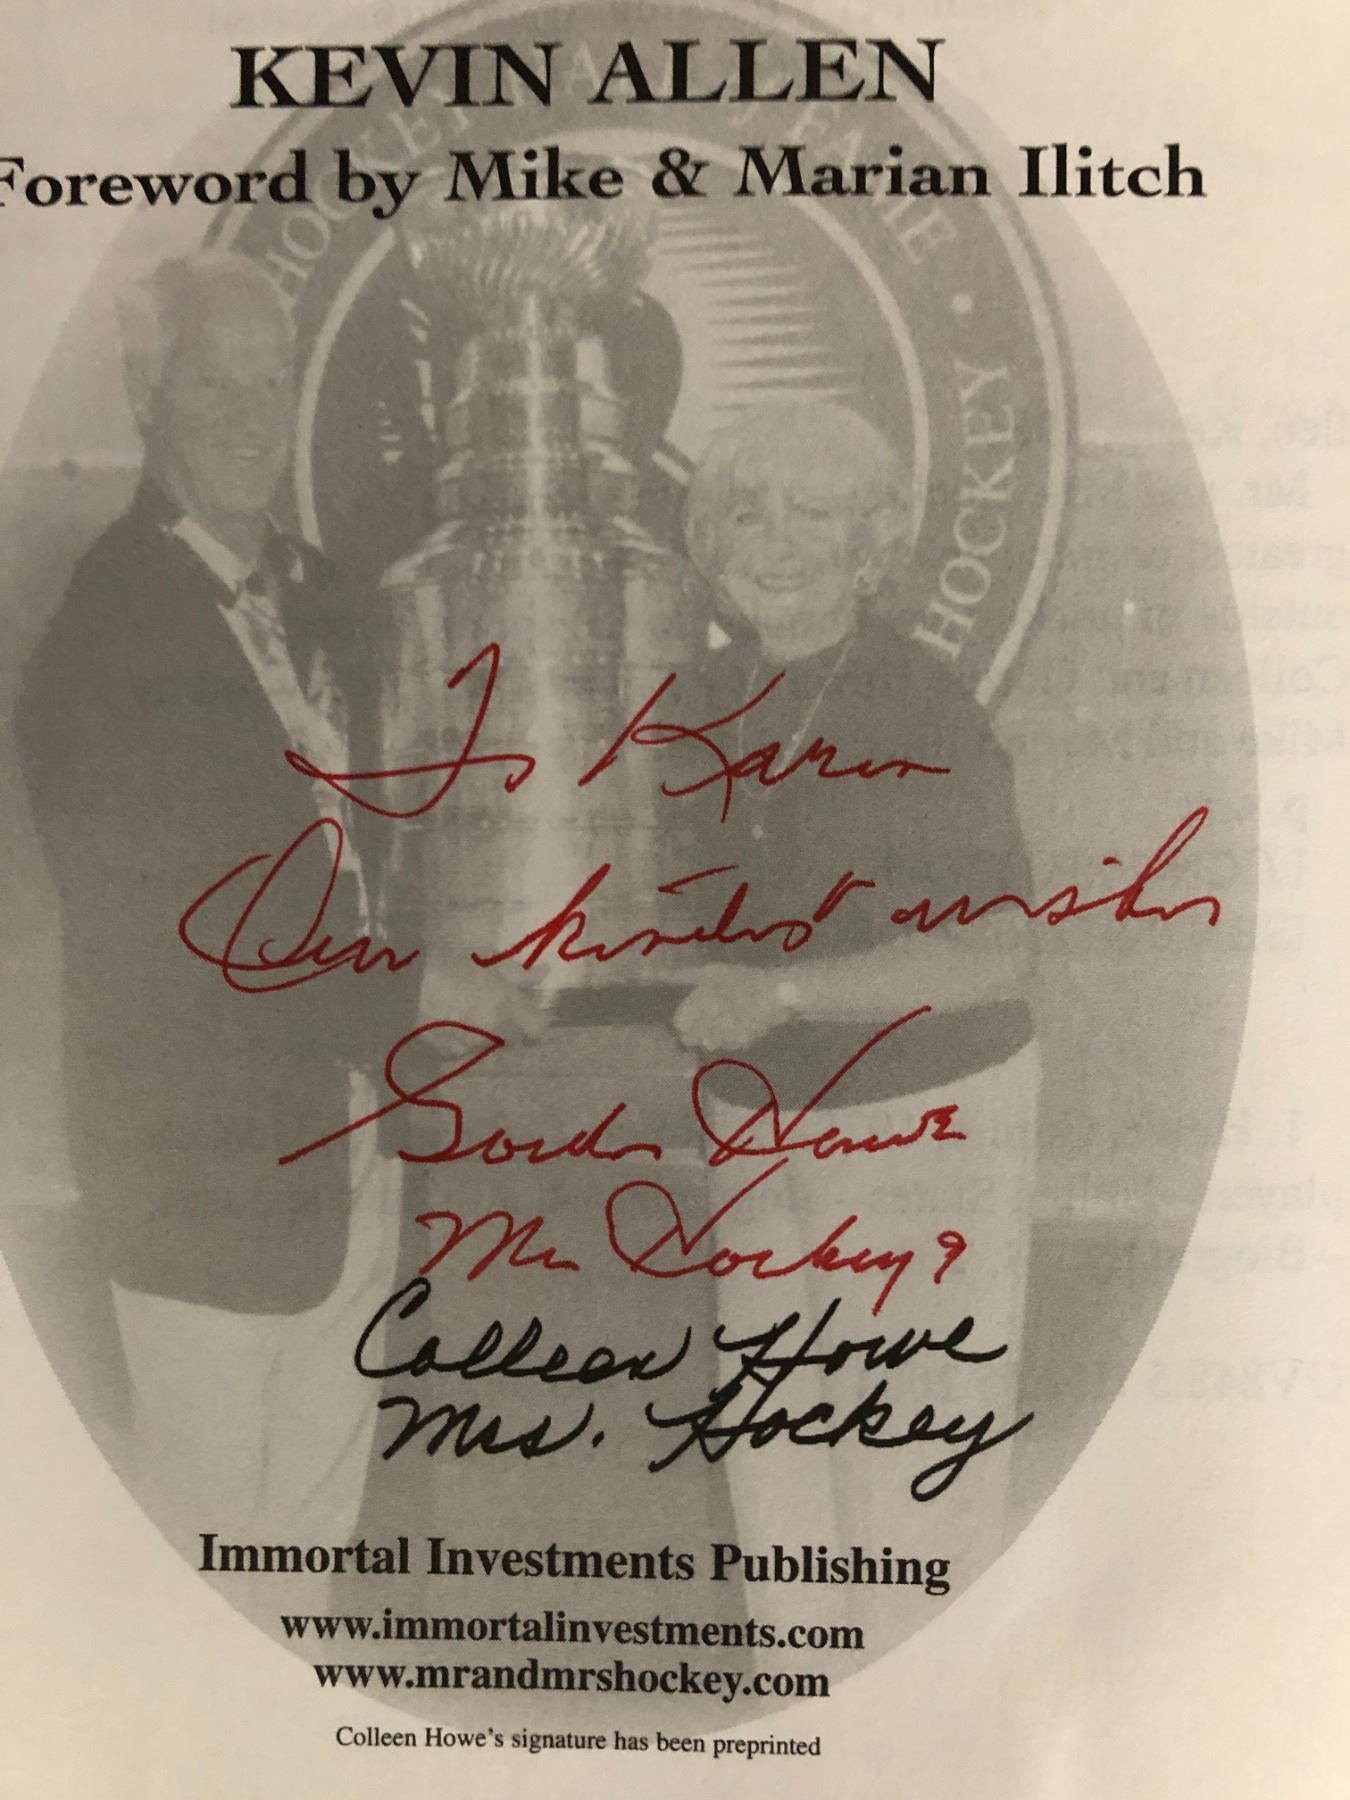 KEVIN ALLEN
Foreword by Mike & Marian Ilitch
HOCKEY HALL OF FAME • HOCKEY
To Karen
Our kindest wishes
Gordie Howe
Mr Hockey 9
Colleen Howe
Mrs. Hockey
Immortal Investments Publishing
www.immortalinvestments.com
www.mrandmrshockey.com
Colleen Howe's signature has been preprinted